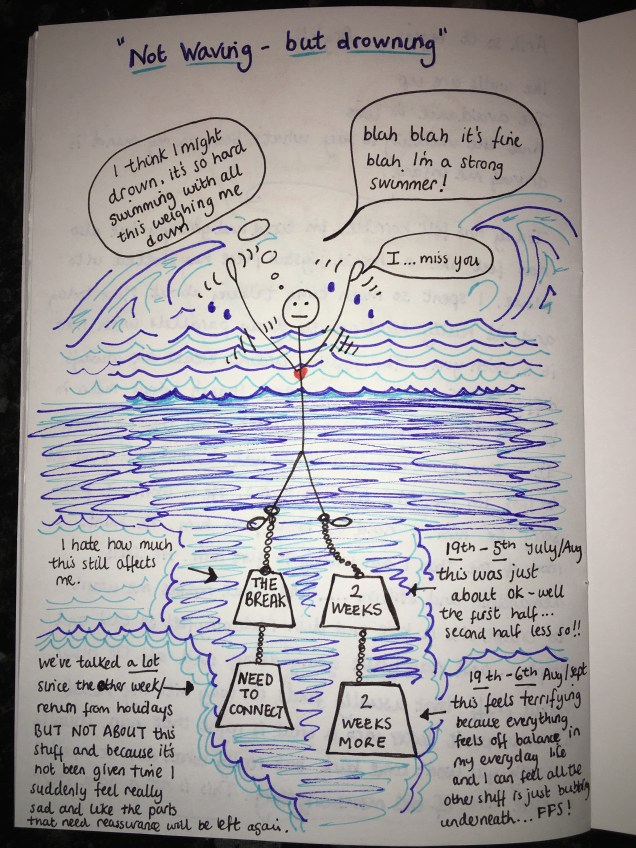 "Not Waving - but drowning"
I think I might
drown, it's so hard
swimming with all
this weighing me
down
blah blah it's fine
blah I'm a strong
swimmer!
I ... miss you
I hate how much
this still affects
me.
THE
BREAK
2
WEEKS
19th - 5th July/Aug
this was just
about ok - well
the first half...
second half less so!!
we've talked a lot
since the other week/
return from holidays
BUT NOT ABOUT this
stuff and because it's
not been given time I
suddenly feel really
sad and like the parts
that need reassurance will be left again.
NEED
TO
CONNECT
2
WEEKS
MORE
19th - 6th Aug/sept
this feels terrifying
because everything
feels off balance in
my everyday life
and I can feel all the
other stuff is just bubbling
underneath... FFS!